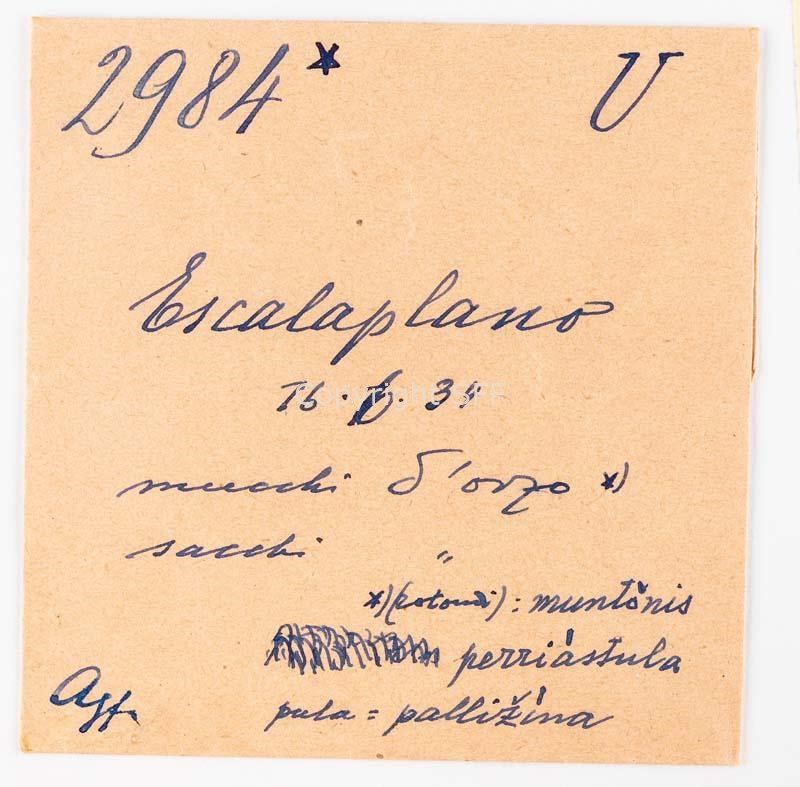 2984* U
Escalaplano
15. 6. 34
mucchi d'orzo *)
sacchi "
*) (rotondi): muntǫ́nis
perriástula
pula = palližína
Agfa